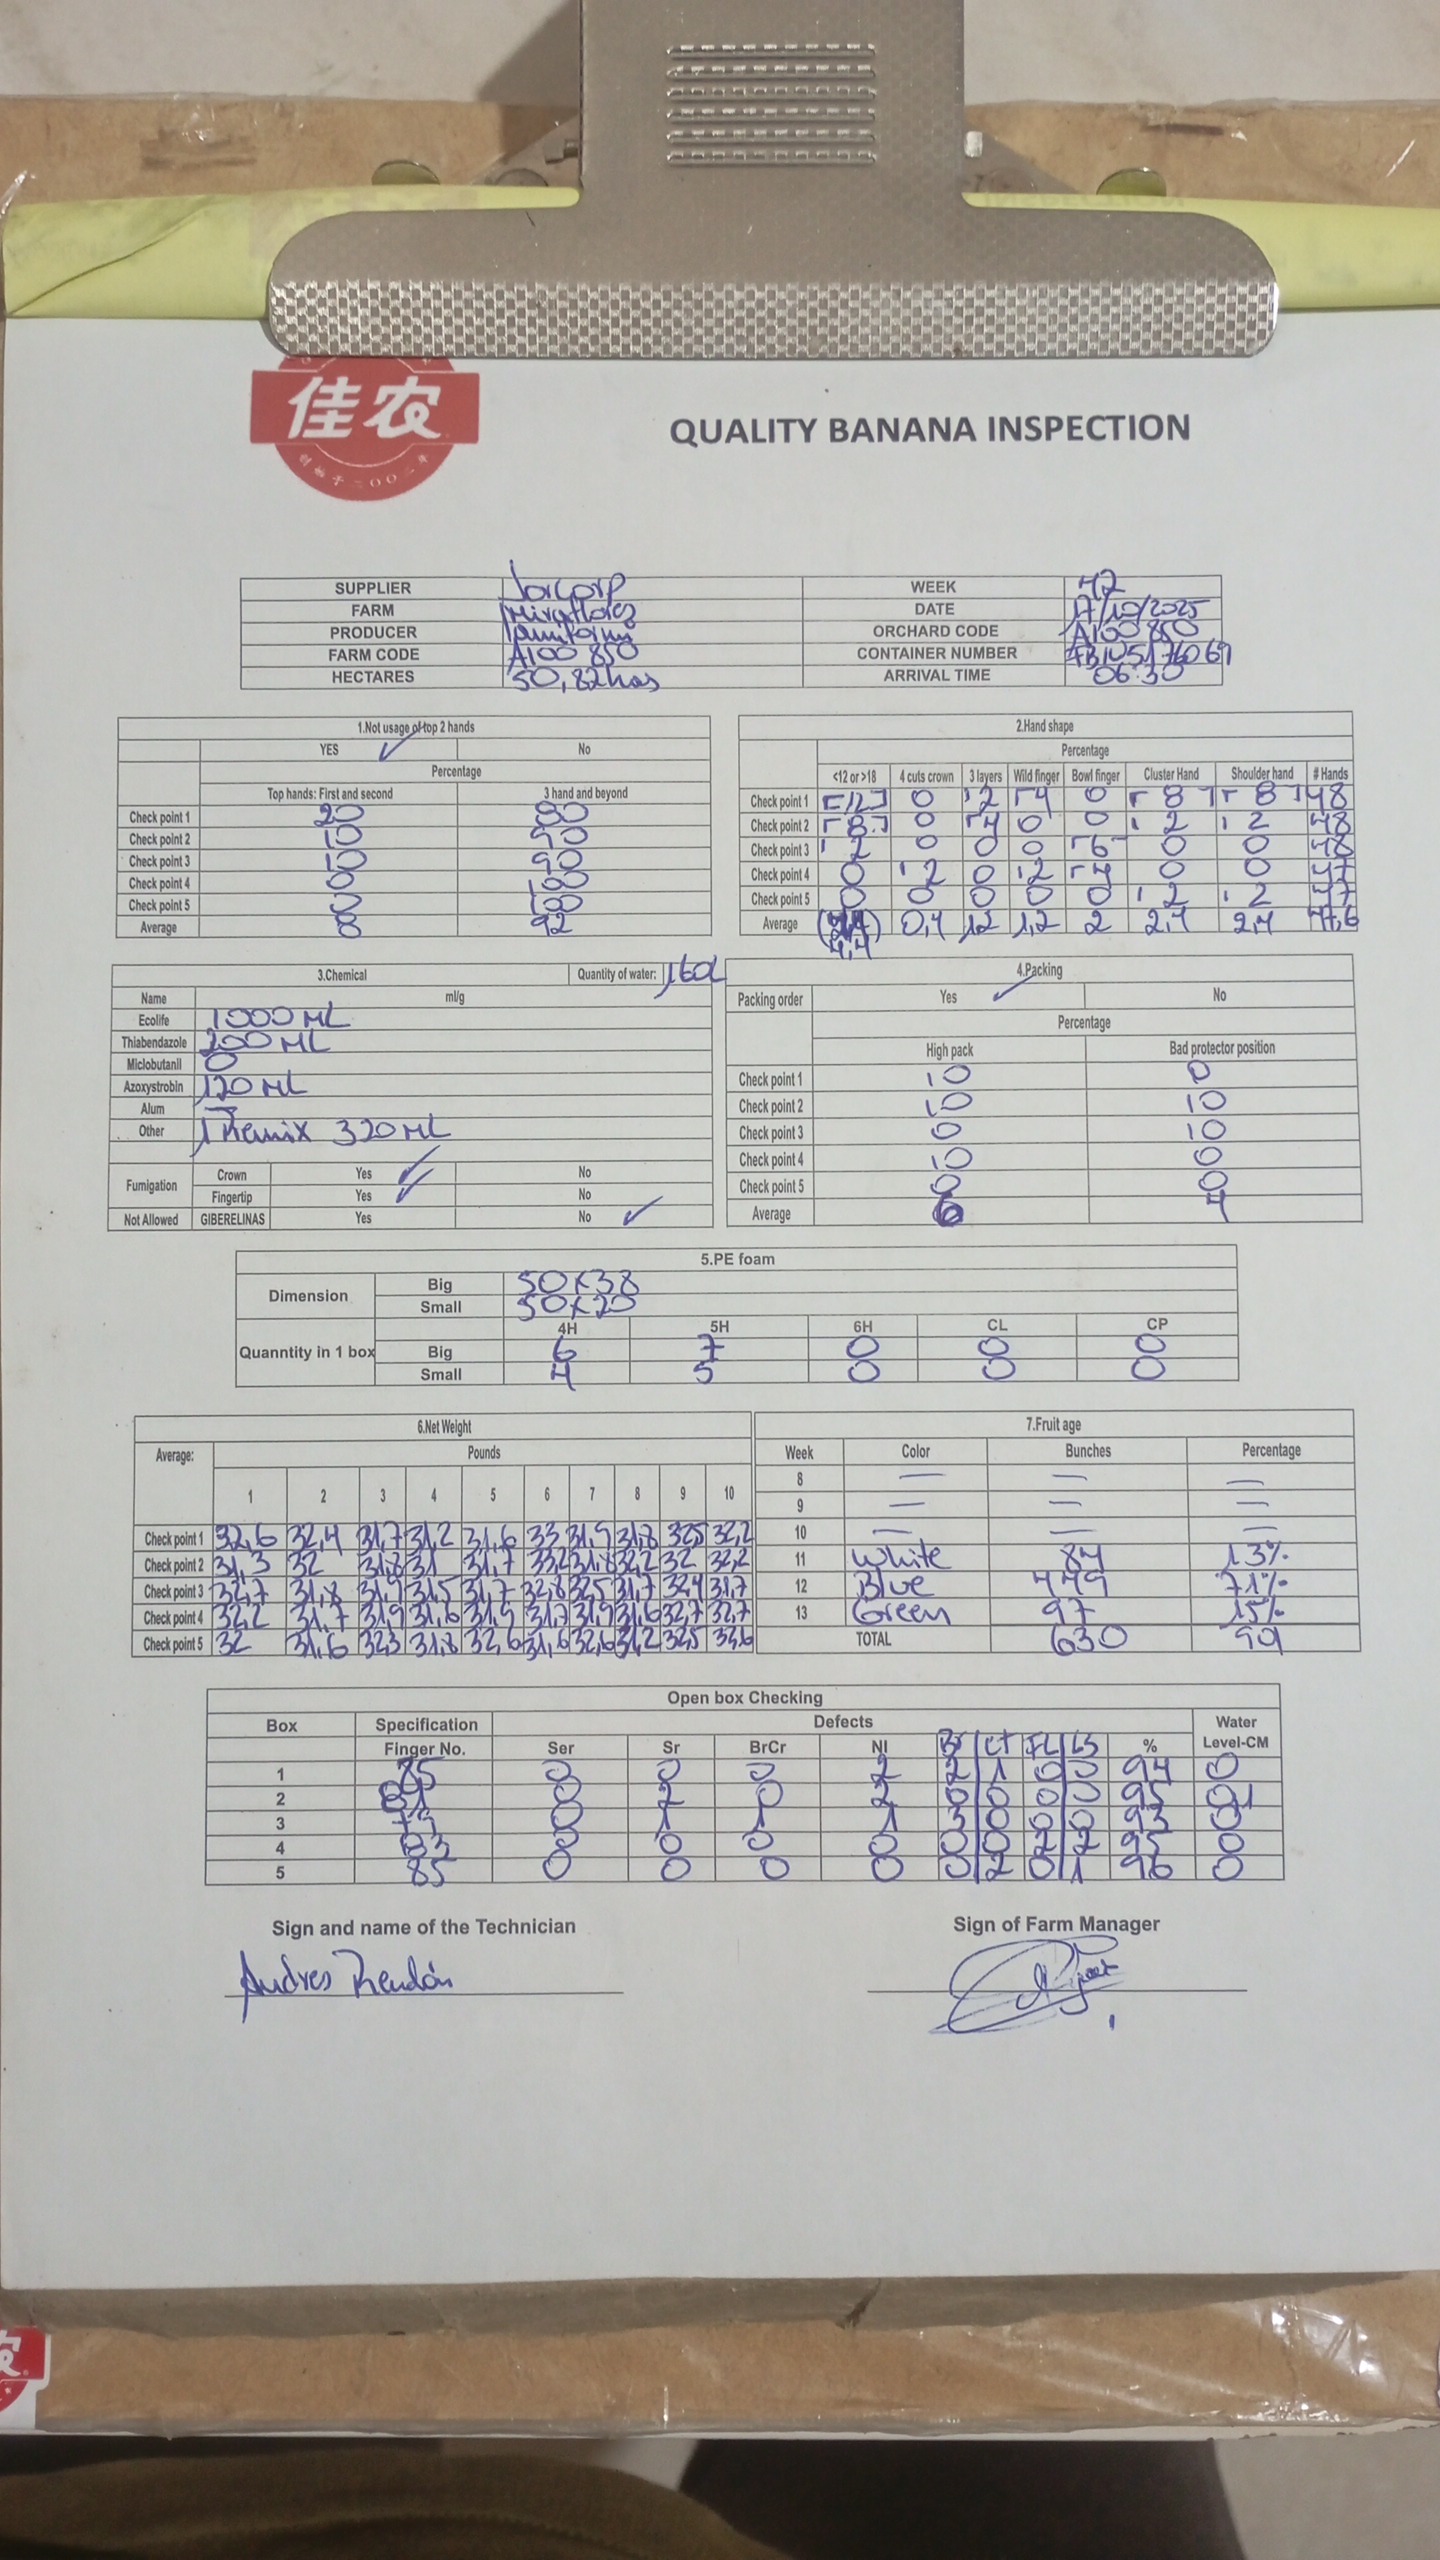 佳农
创始于二〇〇二年
QUALITY BANANA INSPECTION
SUPPLIER Jorcorp WEEK 42
FARM Miraflores DATE 17/10/2025
PRODUCER ORCHARD CODE A100 850
FARM CODE A100 850 CONTAINER NUMBER
HECTARES 50,82has ARRIVAL TIME 06:30
1.Not usage of top 2 hands
YES ✓ No
Percentage
Top hands: First and second 3 hand and beyond
Check point 1 20 80
Check point 2 10 90
Check point 3 10 90
Check point 4 0 100
Check point 5 0 100
Average 8 92
2.Hand shape
Percentage
<12 or >18 4 cuts crown 3 layers Wild finger Bowl finger Cluster Hand Shoulder hand # Hands
Check point 1 12 0 2 4 0 8 8 48
Check point 2 8 0 4 0 0 2 2 48
Check point 3 2 0 0 0 6 0 0 48
Check point 4 0 2 0 2 4 0 0 47
Check point 5 0 0 0 0 0 2 2 47
Average 4,4 0,4 1,2 1,2 2 2,4 2,4 47,6
3.Chemical Quantity of water: 160L
Name ml/g
Ecolife 1000 ML
Thiabendazole 200 ML
Miclobutanil 0
Azoxystrobin 120 ML
Alum —
Other 320 ML
Fumigation Crown Yes ✓ No
Fingertip Yes ✓ No
Not Allowed GIBERELINAS Yes No ✓
4.Packing
Packing order Yes ✓ No
Percentage
High pack Bad protector position
Check point 1 10 0
Check point 2 10 10
Check point 3 0 10
Check point 4 10 0
Check point 5 0 0
Average 6 4
5.PE foam
Dimension Big 50x38
Small 50x20
4H 5H 6H CL CP
Quanntity in 1 box Big 6 7 0 0 0
Small 4 5 0 0 0
6.Net Weight
Average: Pounds
1 2 3 4 5 6 7 8 9 10
Check point 1 32,6 32,4 31,7 31,2 31,6 33 31,9 31,8 32,5 32,2
Check point 2 31,3 32 31,8 31 31,7 33,2 31,8 32,2 32 32,2
Check point 3 32,7 31,8 31,9 31,5 31,7 32,8 32,5 31,7 32,4 31,7
Check point 4 32,2 31,7 31,9 31,6 31,9 31,7 31,9 31,6 32,7 32,7
Check point 5 32 31,6 32,3 31,8 32,6 31,6 32,6 31,2 32,5
7.Fruit age
Week Color Bunches Percentage
8 — — —
9 — — —
10 — — —
11 White 84 13%
12 Blue 449 71%
13 Green 97 15%
TOTAL 630 99
Open box Checking
Box Specification Defects Water
Finger No. Ser Sr BrCr NI Br CT FL LS % Level-CM
1 85 0 0 0 2 2 1 0 0 94 0
2 81 0 2 0 2 0 0 0 0 95 01
3 79 0 1 1 1 3 0 0 0 93 0
4 83 0 0 0 0 0 0 2 2 95 0
5 85 0 0 0 0 0 2 0 1 96 0
Sign and name of the Technician Sign of Farm Manager
Andres Rendón
农